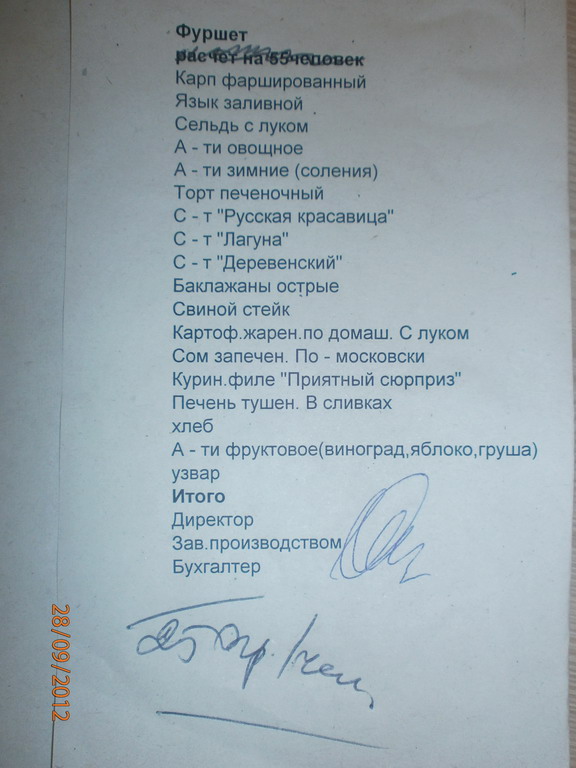 Фуршет
расчет на 55человек
Карп фаршированный
Язык заливной
Сельдь с луком
А - ти овощное
А - ти зимние (соления)
Торт печеночный
С - т "Русская красавица"
С - т "Лагуна"
С - т "Деревенский"
Баклажаны острые
Свиной стейк
Картоф.жарен.по домаш. С луком
Сом запечен. По - московски
Курин.филе "Приятный сюрприз"
Печень тушен. В сливках
хлеб
А - ти фруктовое(виноград,яблоко,груша)
узвар
Итого
Директор
Зав.производством
Бухгалтер
28/09/2012